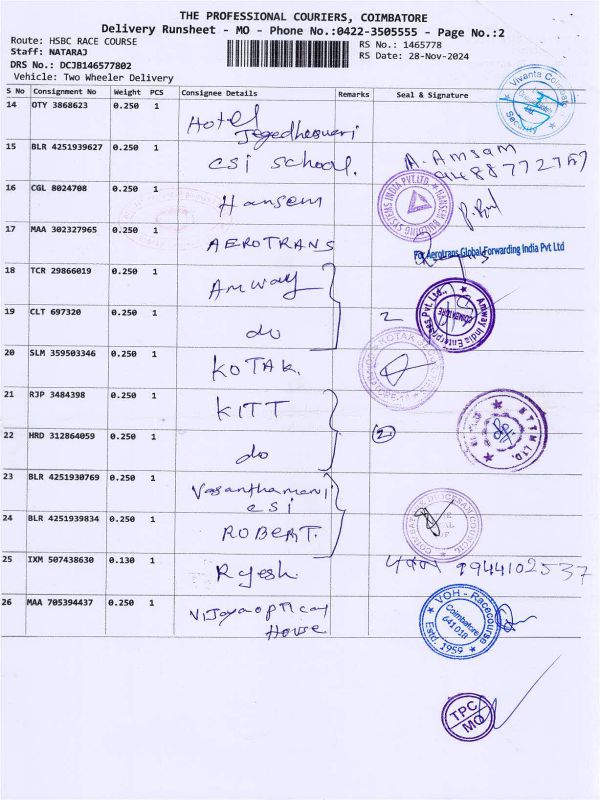 THE PROFESSIONAL COURIERS, COIMBATORE
Delivery Runsheet - MO - Phone No.:0422-3505555 - Page No.:2
Route: HSBC RACE COURSE
RS No.: 1465778
Staff: NATARAJ
RS Date: 28-Nov-2024
DRS No.: DCJB146577802
Vehicle: Two Wheeler Delivery
S No Consignment No Weight PCS Consignee Details Remarks Seal & Signature
Vivanta Coimbatore
Security
14 OTY 3868623 0.250 1 Hotel
Jegedheswari
15 BLR 4251939627 0.250 1 CSI School. A. Amsam
9488772767
16 CGL 8024708 0.250 1 Hansem
HANSEM BUILDING SYSTEMS INDIA PVT.LTD
17 MAA 302327965 0.250 1 AEROTRANS
For Aerotrans Global Forwarding India Pvt Ltd
18 TCR 29866019 0.250 1 Amway
Amway India Enterprises Pvt. Ltd.,
COIMBATORE
19 CLT 697320 0.250 1 do 2
20 SLM 359503346 0.250 1 KOTAK.
KOTAK
21 RJP 3484398 0.250 1 KITT
LTD.
22 HRD 312864059 0.250 1 do 2
23 BLR 4251930769 0.250 1 Vasanthamani
CSI
COIMBATORE DIOCESAN COUNCIL
24 BLR 4251939834 0.250 1 ROBERT.
25 IXM 507438630 0.130 1 Rajesh 9944102537
26 MAA 705394437 0.250 1 Vijayaoptical
House
VOH - Racecourse
Coimbatore
641 018
Estd. 1959
TPC
MO